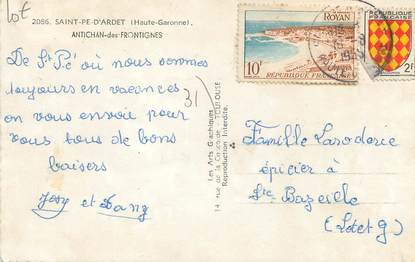 lot
2086. SAINT-PE-D'ARDET (Haute-Garonne).
ANTICHAN-des-FRONTIGNES
De St Pé où nous sommes
toujours en vacances
on vous envoie pour
vous tous de bons
baisers
Josy et
31
Les Arts Graphiques
14, rue de la TOULOUSE
Reproduction Interdite.
ROYAN
10F
REPUBLIQUE FRANÇAISE
REPUBLIQUE
FRANÇAISE
2F
Famille Laroderie
épicier à
Ste Bazeille
(Lot et G)